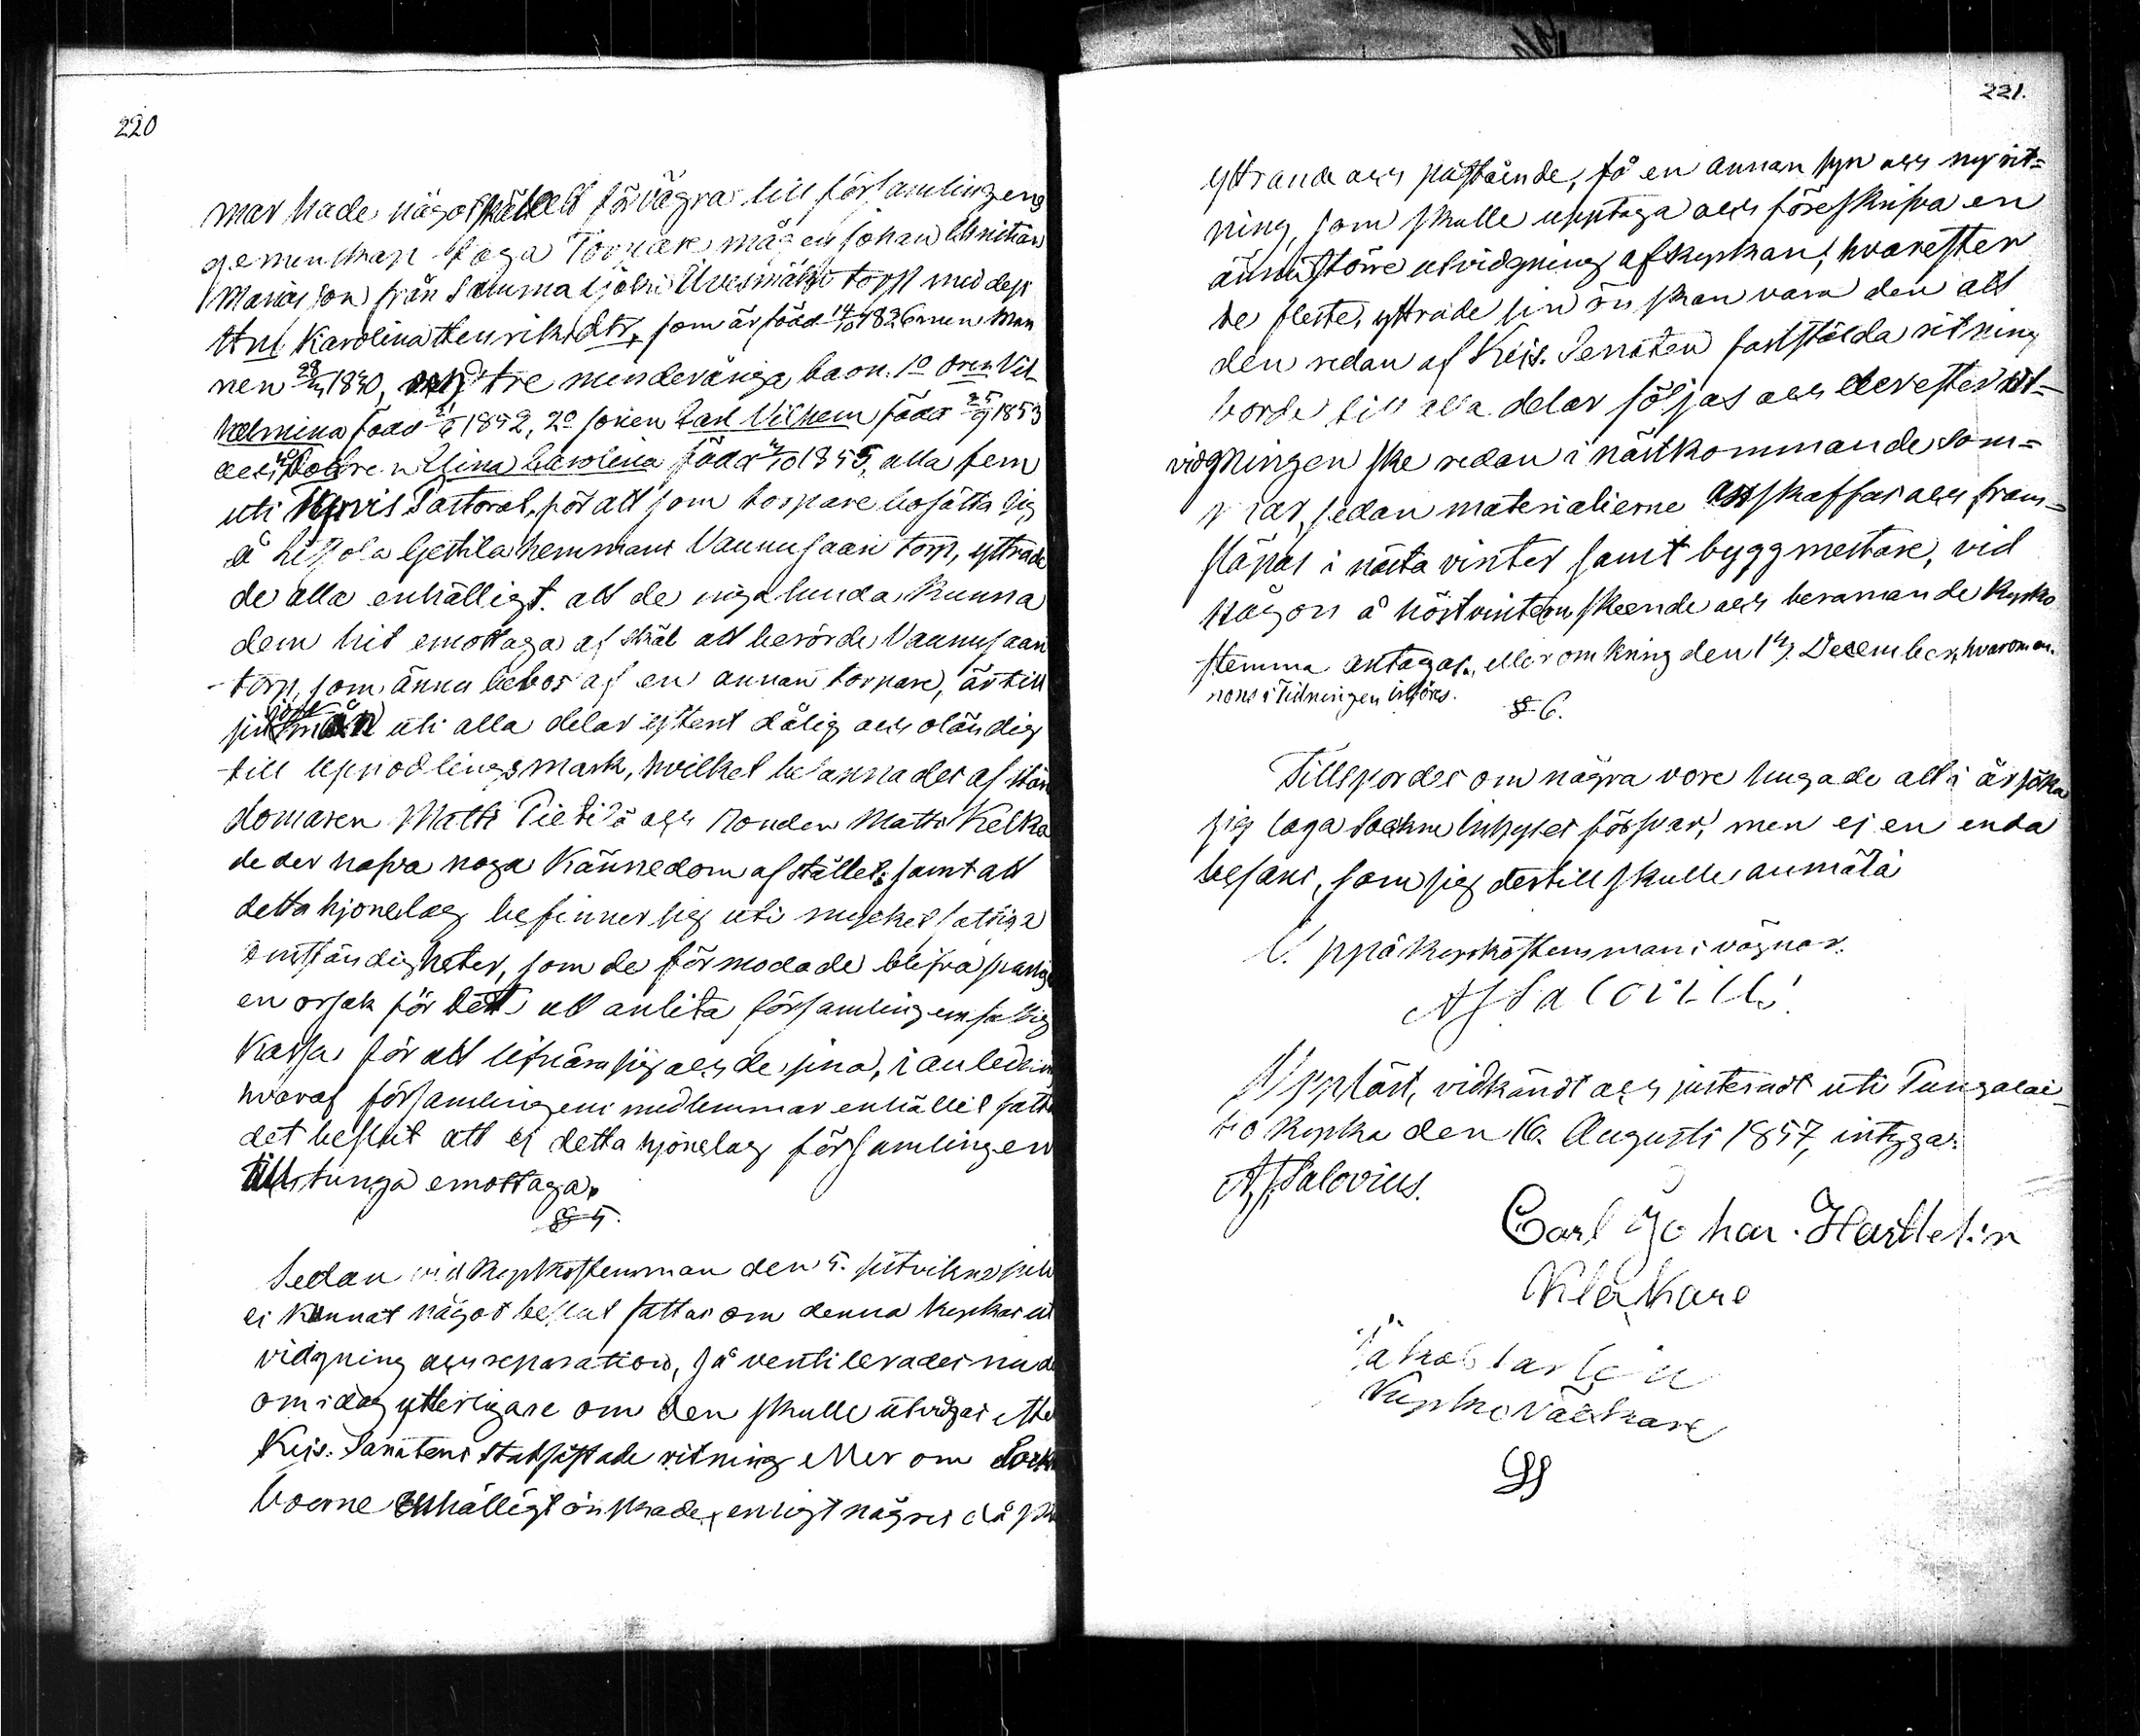 220
mar hade något skäl att förvägra till församlingens
gemenskap taga Torpare mågen Johan Christian
Mariasson från Samma torp med dess
Hu Karolina Henriksdtr, som är född 14/10 1826 men Man
nen 28/ 1830, och tre mindeåriga barn. 1o Vil
helmina född 1852, 2o sonen Carl Vilhem född 25/9 1853
och dottren Elina Carolina född /10 1855, alla fem
uti Pastorat, för att som torpare bosätta sig
å hemmans Vannusaari torp, yttrade
de alla enhälligt att de ingalunda kunna
dem hit emottaga af skäl att berörde Vannusaari
torp, som ännu bebos af en annan torpare, är till
sin uti alla delar ytterst dålig och oländig
till uppodlingsmark, hvilket besannades af
domaren Matti Pietilä och bonden Matti Kelka
de der hafva noga kännedom af stället; samt att
detta hjonelag befinner sig uti mycket fattiga
omständigheter, som de förmodade blifva
en orsak för dett att anlita församlingens fattig
kassa för att lifnära sig och de sina, i anledning
hvaraf församlingens medlemmar enhälligt fatta
det beslut att ej detta hjonelag församlingen
till tunga emottaga.
§ 5.
Sedan vid Kyrkostemman den 5. sistvikne Juli
ei kunnat något beslut fattas om denna kyrkas ut
vidgning och reparation, så ventilerades nu de
om idag ytterligare om den skulle utvidgas efter
Kejs. Senatens stadfästade ritning eller om Sockne
boerne enhälligt önskade, enligt någres då
221.
yttrande och påstående, få en annan syn och ny rit=
ning, som skulle upptaga och föreskrifva en
ännu större utvidgning af kyrkan; hvarefter
de fleste, yttrade sin önskan vara den att
den redan af Kejs. Senaten fastställda ritning
borde till alla delar följas och derefter ut=
vidgningen ske redan i nästkommande som=
mar, sedan materialierne anskaffas och fram=
släpas i nästa vinter samt byggmestare, vid
någon å höstvintern skeende och beramande Kyrko
stemma antagas, eller omkring den 1. December, hvarom an=
nons i Tidningen införes.
§ 6.
Tillspordes om några vore hugade att i år söka
sig laga försvar, men ej en enda
befans, som sig dertill skulle anmäla
Uppå Kyrkostemmans vägnar:
A J Salovius.
Uppläst, vidkändt och justeradt uti Tungalai=
tio Kyrka den 16. Augusti 1857, intyga:
A J Salovius.
Carl Johan Hartlelin
Klåkkare
Jakob
Kyrko Väktare